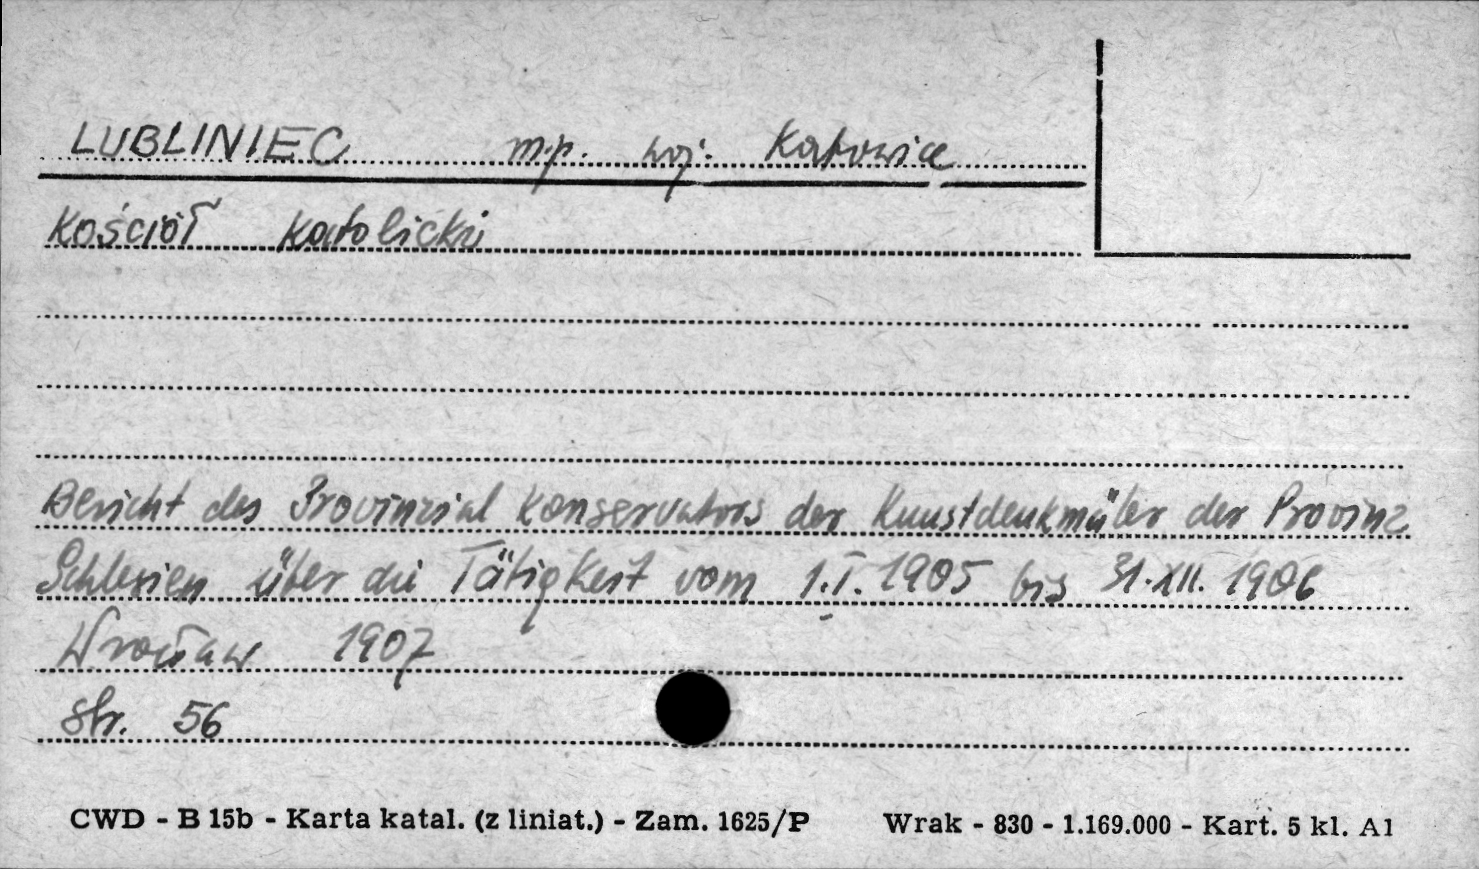 LUBLINIEC m.p. woj. Katowice
Kościół katolicki
Bericht des Provinzial Konservators der Kunstdenkmäler der Provinz
Schlesien über die Tätigkeit vom 1.I.1905 bis 31.XII.1906
Wrocław 1907
str. 56
CWD - B 15b - Karta katal. (z liniat.) - Zam. 1625/P Wrak - 830 - 1.169.000 - Kart. 5 kl. A1